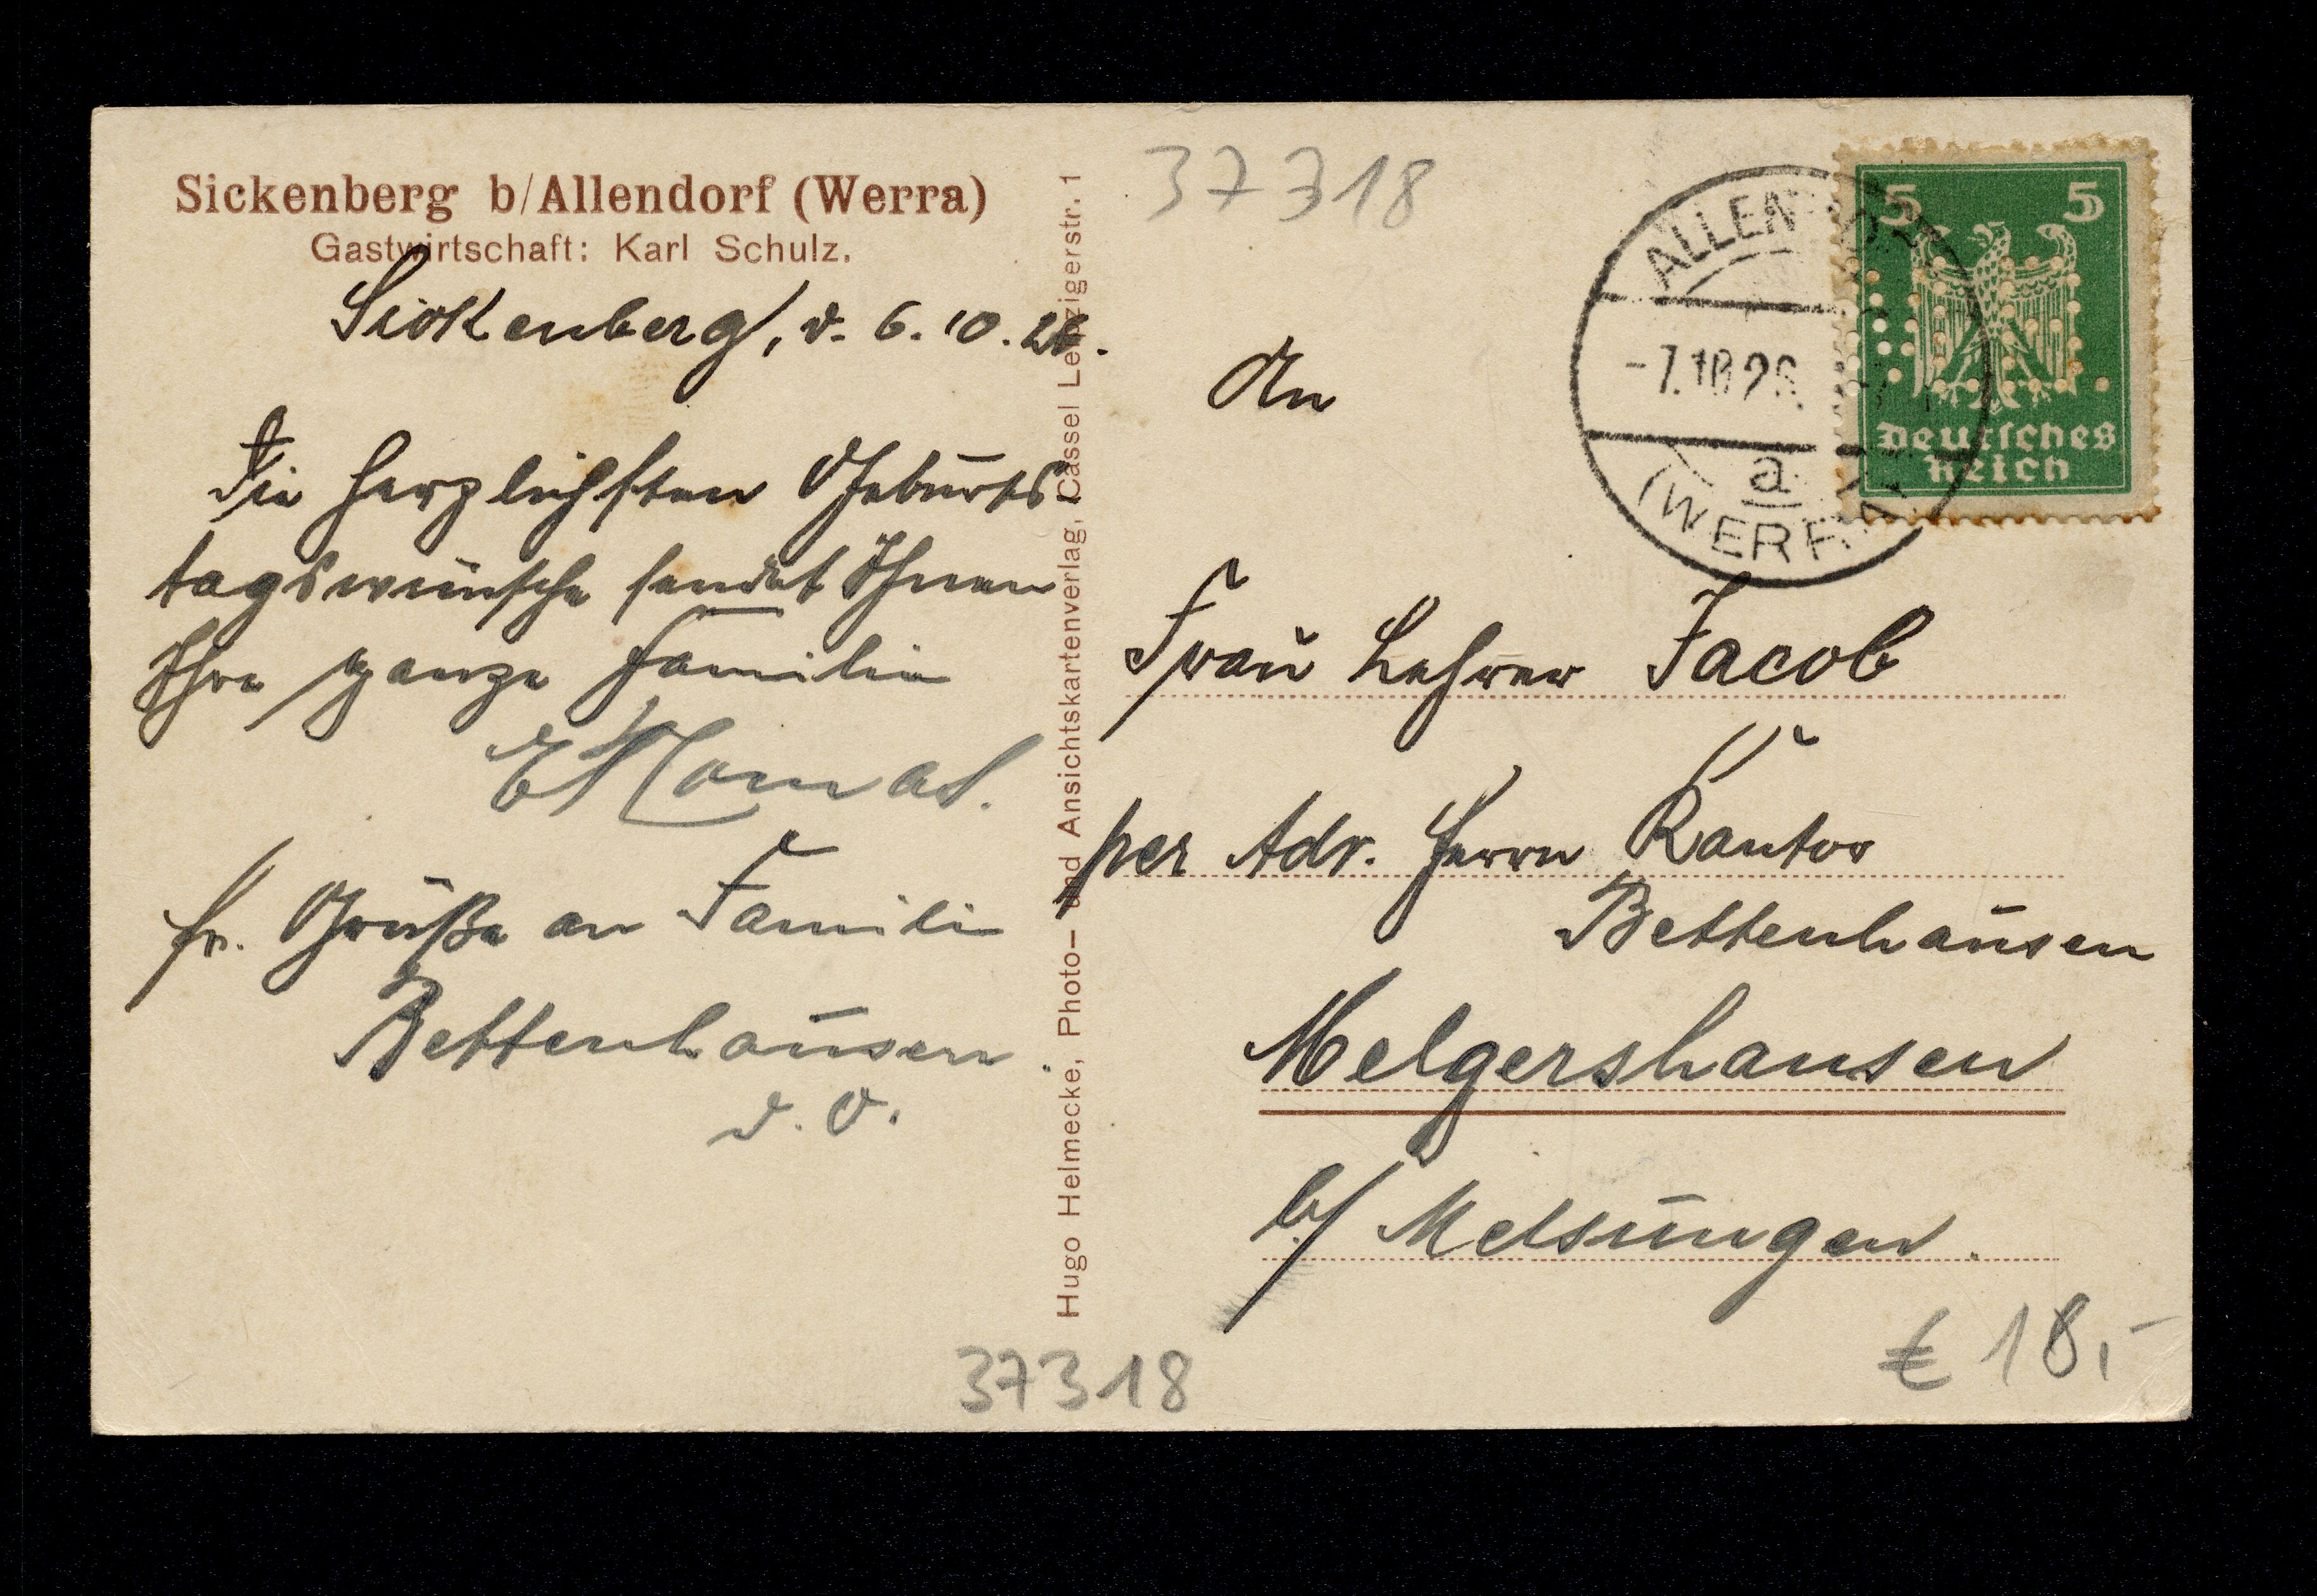 Sickenberg b/Allendorf (Werra)
Gastwirtschaft: Karl Schulz.
Sickenberg, d. 6.10.26.
Die herzlichsten Geburts-
tagswünsche sendet Ihnen
Ihre ganze Familie
fr. Grüße an Familie
Bettenhausen
d. O.
Hugo Helmecke, Photo- und Ansichtskartenverlag, Cassel Leipzigerstr. 1
37318
37318
ALLENDORF
-7.10.26.
a
(WERRA)
5 5
Deutsches
Reich
An
Frau Lehrer Jacob
per Adr. Herrn Kantor
Bettenhausen
Melgershausen
b/ Melsungen.
€ 18,-